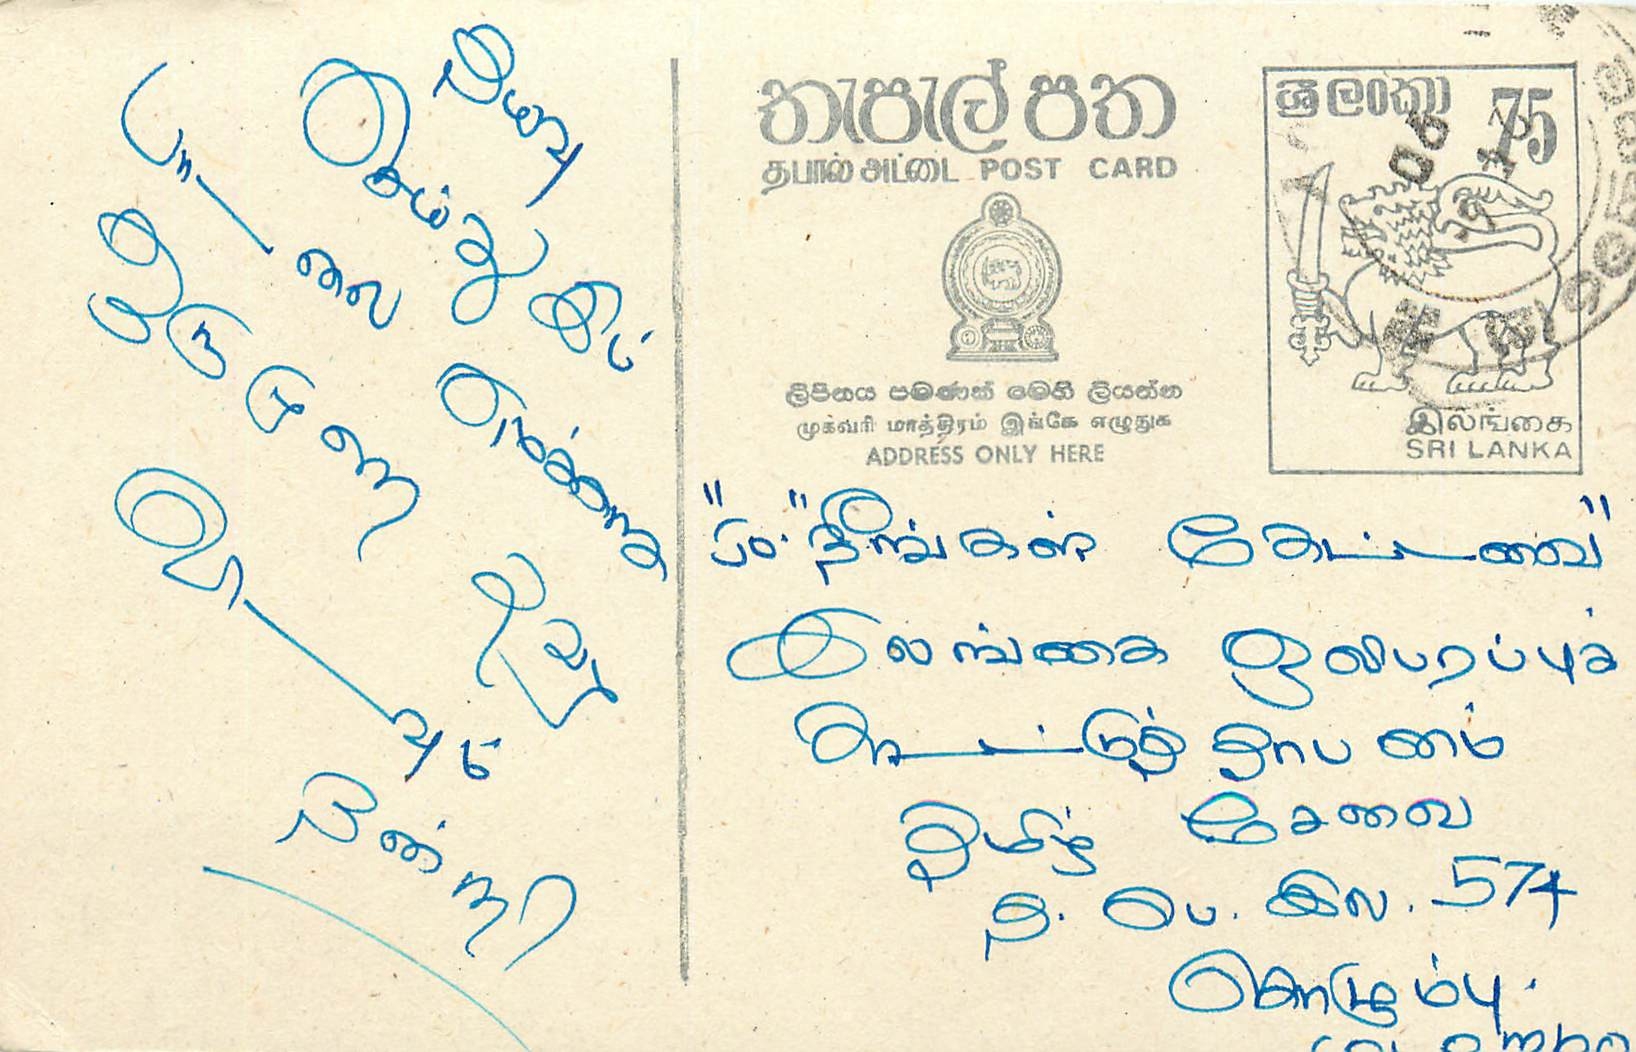 தயவு
செய்து இப்
பாடலை எமக்காக
ஒரு முறை
போடவும்
நன்றி
තැපැල් පත
தபால் அட்டை POST CARD
ලිපිනය පමණක් මෙහි ලියන්න
முகவரி மாத்திரம் இங்கே எழுதுக
ADDRESS ONLY HERE
ශ්‍රී ලංකා 75
இலங்கை
SRI LANKA
"நீங்கள் கேட்டவை"
இலங்கை ஒலிபரப்புக்
கூட்டுத்தாபனம்
தமிழ் சேவை
த. பெ. இல. 574
கொழும்பு.